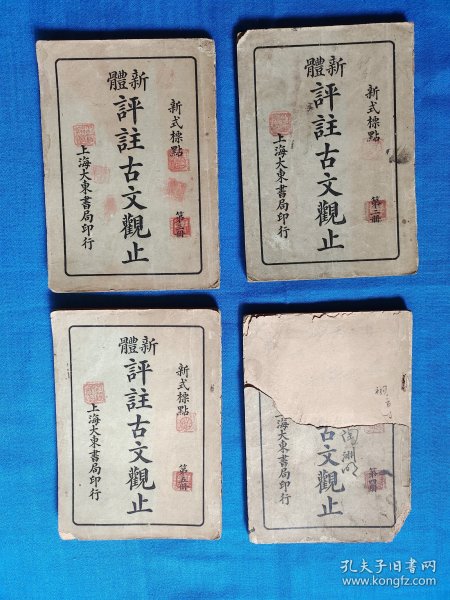 新式標點
第三冊
新體
評註古文觀止
上海大東書局印行
新式標點
第二冊
新體
評註古文觀止
上海大東書局印行
新式標點
第五冊
新體
評註古文觀止
上海大東書局印行
第四冊
古文觀止
海大東書局印行
孔夫子旧书网
www.kongfz.com